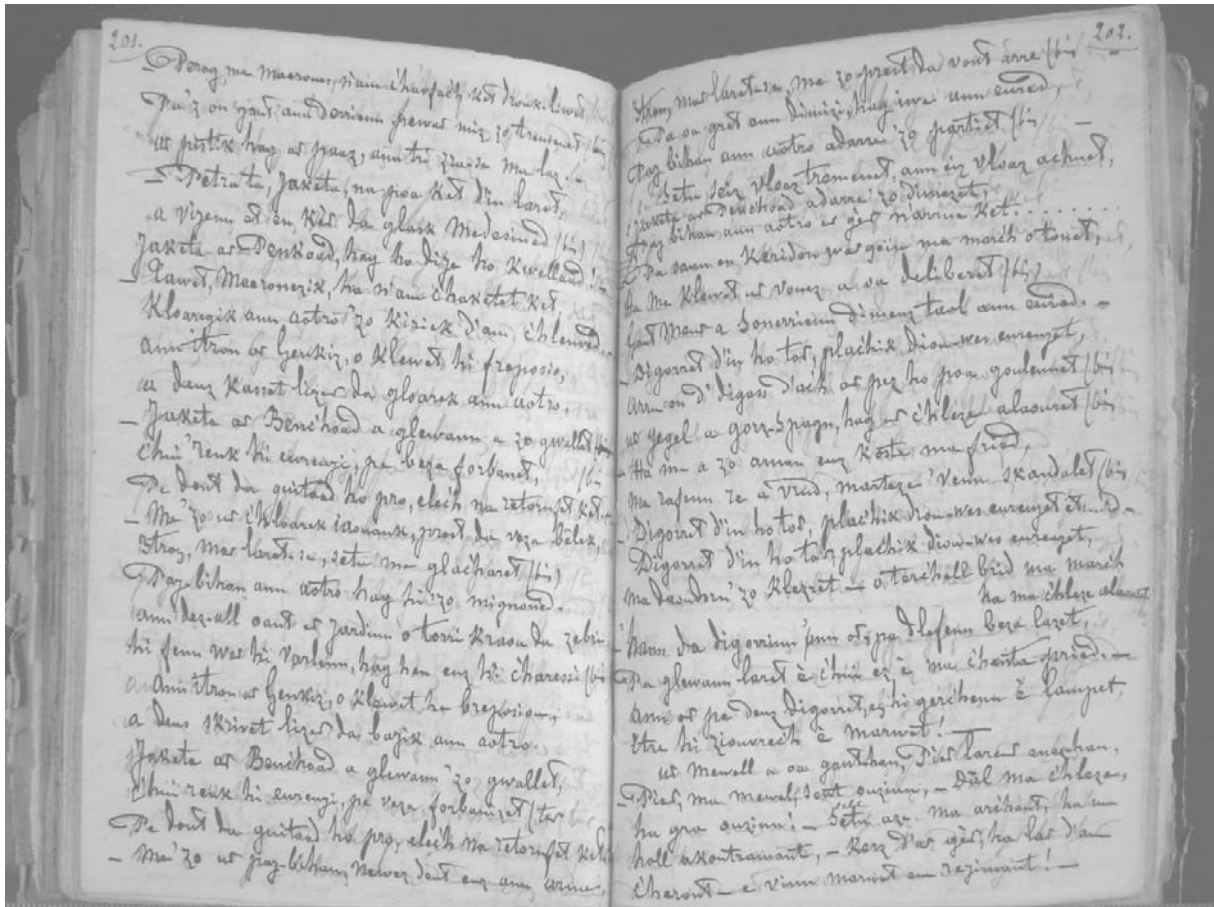 201.
– Perag, ma Maerones, n'am c'harfac'h ket drouk-livet,
Pa'z on gant ann derrienn pewar miz zo tremenet (bis)
ar pistik hag ar paaz, ann tri zra-se ma laz. –
– Petra ta, Jaketa, na poa ket d'in laret,
a vizenn et en kêr da glask Medesined (bis)
Jaketa ar Penkoad, hag ho dije ho kwellaad!
– Tawet, Maeronezik, ha n'am c'haketet ket,
Kloaregik ann aotro 'zo kiriek d'am c'hlenved –
Ann itron ar Genkiz, o klewet hi frepozio,
a deuz kasset lizer da gloarek ann aotro.
– Jaketa ar Benc'hoad a glewann a zo gwallet (bis)
C'hui renk hi eureuji, pe beza forbanet, (bis)
Pe dont da guitaad ho pro, elec'h na retornfet ket. –
– Me 'zo ur c'hloarek iaouank, prest da veza bêlek,
Itron, mar laret-se, setu me glac'haret (bis)
Paz-bihan ann aotro hag hi 'zo mignoned.
ann dez-all oant er jardinn o torri kraou da zebri
hi fenn war hi varlenn, hag hen euz hi c'haressi (bis)
Ann itron ar Genkiz, o klewet ho brepozio,
a deus skrivet lizer da bajik ann aotro.
Jaketa ar Benc'hoad a glewann 'zo gwallet,
C'hui renk hi eureuji, pe veza forbanizet (ter
Pe dont da guitaad ho pro, elec'h na retornfet ket.
– Me 'zo ur paz-bihan, newez deut euz ann arme,
202.
Itron, mar laret-se, me zo prest da vont arre (bis
Pa oa gret ann dimizi, hag iwe ann eured,
Paz bihan ann aotro adarre 'zo partiet (bis
Setu seiz vloaz tremenet, ann eiz vloaz achuet,
Jaketa ar Penc'hoad adarre zo dimezet,
Paz bihan ann aotro er gêr n'arriue ket. . . . . . . .
Pa oann en Keridon war gein ma marc'h o tonet,
Ha me klewet ur vouez a oa deliberet (bis)
Gant Mouez a sonerrienn dimeuz taol ann eured. –
– Digorret d'in ho tor, plac'hik diou-wes eureujet,
Arru on d' digass d'ac'h ar pez ho poa goulennet (bis
ur gegel a gorz-Spagn, hag ur c'hleze alaouret (bis
– Ha me a zo aman euz koste ma fried,
Me rafenn ze a vad, marteze 'venn skandalet (bis
– Digorret d'in ho tor, plac'hik diou-wes eureujet
Digorret d'in ho tor, plac'hik diou-wes eureujet,
Ma daoudorn 'zo klezret – o terc'hell brid ma marc'h
ha ma c'hleze alaouret
Pa glewann laret è c'hui ez è ma c'henta pried. –
Ann or pe deuz digorret, en hi gerc'henn è lampet,
Etre hi ziouvrec'h è marwet! –
ur mewell a oa gant-han, Pier lared anezhan,
– Pier, ma mewel, sent ouzinn, – Dal ma c'hleze,
ha gra ouzinn! – Setu aze ma arc'hant, ha ma
holl akoutramant, – Kerz d'ar gêr, ha lar d'am
c'heront – e vinn marwet en rezimant! –